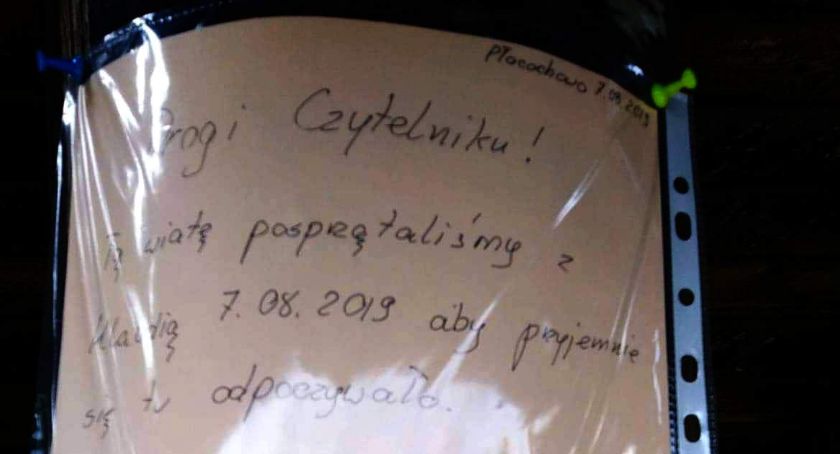 Płacachowo 7.08.2019
Drogi Czytelniku!
Tą wiatę posprzątaliśmy z
Klaudią 7.08.2019 aby przyjemnie
się tu odpoczywało.